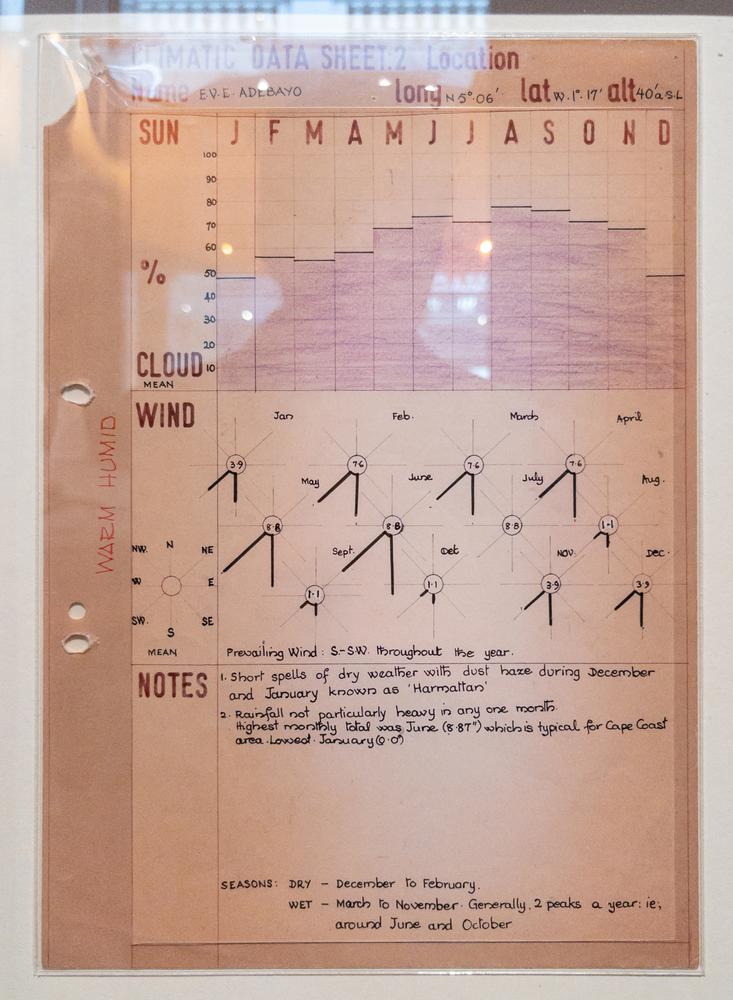 CLIMATIC DATA SHEET:2 Location
Name E.V.E. ADEBAYO long N 5°.06' lat W.1°.17' alt 40'a.s.L
SUN J F M A M J J A S O N D
100
90
80
70
60
%
50
40
30
20
CLOUD 10
MEAN
WIND
Jan Feb. March April
3.9 7.6 7.6 7.6
May June July Aug.
8.8 8.8 8.8 1.1
Sept. Oct NOV. Dec.
1.1 1.1 3.9 3.9
NW. N NE
W E
SW. S SE
MEAN
Prevailing Wind: S-SW. throughout the year.
WARM HUMID
NOTES
1. Short spells of dry weather with dust haze during December
and January known as 'Harmattan'
2. Rainfall not particularly heavy in any one month.
Highest monthly total was June (8.87") which is typical for Cape Coast
area. Lowest. January (0.0")
SEASONS: DRY – December to February.
WET – March to November. Generally, 2 peaks a year: ie;
around June and October